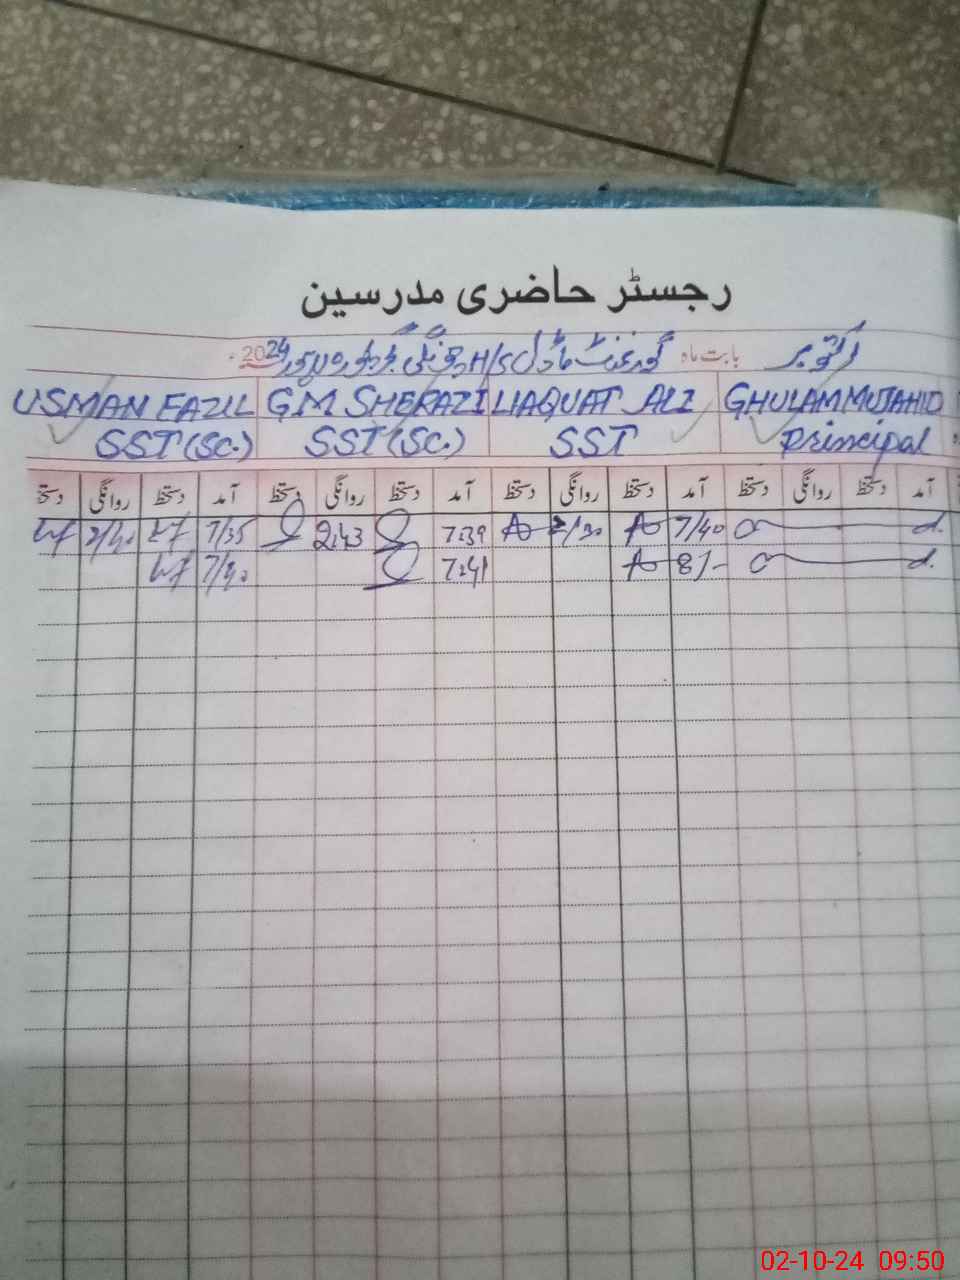 رجسٹر حاضری مدرسین
اکتوبر بابت ماہ گورنمنٹ ماڈل H/S 2024
USMAN FAZIL G.M SHERAZI LIAQUAT ALI GHULAM MUJAHID
SST (SC.) SST (SC.) SST Principal
آمد دستخط روانگی دستخط آمد دستخط روانگی دستخط آمد دستخط روانگی دستخط آمد دستخط روانگی دستخط
7/40 2/30 7:39 2:43 7/35 2/40
8/- 7:41 7/40
02-10-24 09:50